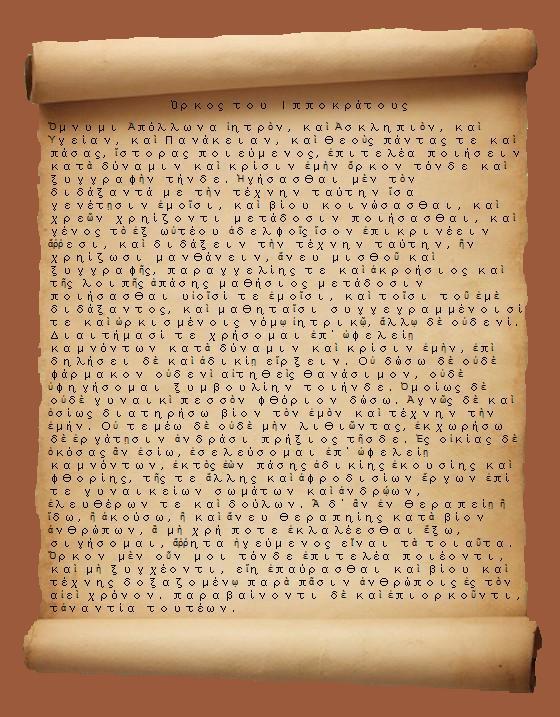 Ὅρκος του Ιπποκράτους
Ὄμνυμι Ἀπόλλωνα ἰητρὸν, καὶ Ἀσκληπιὸν, καὶ
Ὑγείαν, καὶ Πανάκειαν, καὶ θεοὺς πάντας τε καὶ
πάσας, ἵστορας ποιεύμενος, ἐπιτελέα ποιήσειν
κατὰ δύναμιν καὶ κρίσιν ἐμὴν ὅρκον τόνδε καὶ
ξυγγραφὴν τήνδε. Ἡγήσασθαι μὲν τὸν
διδάξαντά με τὴν τέχνην ταύτην ἴσα
γενέτῃσιν ἐμοῖσι, καὶ βίου κοινώσασθαι, καὶ
χρεῶν χρηίζοντι μετάδοσιν ποιήσασθαι, καὶ
γένος τὸ ἐξ ωὐτέου ἀδελφοῖς ἴσον ἐπικρινέειν
ἄῤῥεσι, καὶ διδάξειν τὴν τέχνην ταύτην, ἢν
χρηίζωσι μανθάνειν, ἄνευ μισθοῦ καὶ
ξυγγραφῆς, παραγγελίης τε καὶ ἀκροήσιος καὶ
τῆς λοιπῆς ἁπάσης μαθήσιος μετάδοσιν
ποιήσασθαι υἱοῖσί τε ἐμοῖσι, καὶ τοῖσι τοῦ ἐμὲ
διδάξαντος, καὶ μαθηταῖσι συγγεγραμμένοισί
τε καὶ ὡρκισμένοις νόμῳ ἰητρικῷ, ἄλλῳ δὲ οὐδενί.
Διαιτήμασί τε χρήσομαι ἐπ' ὠφελείῃ
καμνόντων κατὰ δύναμιν καὶ κρίσιν ἐμὴν, ἐπὶ
δηλήσει δὲ καὶ ἀδικίῃ εἴρξειν. Οὐ δώσω δὲ οὐδὲ
φάρμακον οὐδενὶ αἰτηθεὶς θανάσιμον, οὐδὲ
ὑφηγήσομαι ξυμβουλίην τοιήνδε. Ὁμοίως δὲ
οὐδὲ γυναικὶ πεσσὸν φθόριον δώσω. Ἁγνῶς δὲ καὶ
ὁσίως διατηρήσω βίον τὸν ἐμὸν καὶ τέχνην τὴν
ἐμήν. Οὐ τεμέω δὲ οὐδὲ μὴν λιθιῶντας, ἐκχωρήσω
δὲ ἐργάτῃσιν ἀνδράσι πρήξιος τῆσδε. Ἐς οἰκίας δὲ
ὁκόσας ἂν ἐσίω, ἐσελεύσομαι ἐπ' ὠφελείῃ
καμνόντων, ἐκτὸς ἐὼν πάσης ἀδικίης ἑκουσίης καὶ
φθορίης, τῆς τε ἄλλης καὶ ἀφροδισίων ἔργων ἐπί
τε γυναικείων σωμάτων καὶ ἀνδρῴων,
ἐλευθέρων τε καὶ δούλων. Ἃ δ' ἂν ἐν θεραπείῃ ἢ
ἴδω, ἢ ἀκούσω, ἢ καὶ ἄνευ θεραπηίης κατὰ βίον
ἀνθρώπων, ἃ μὴ χρή ποτε ἐκλαλέεσθαι ἔξω,
σιγήσομαι, ἄῤῥητα ἡγεύμενος εἶναι τὰ τοιαῦτα.
Ὅρκον μὲν οὖν μοι τόνδε ἐπιτελέα ποιέοντι,
καὶ μὴ ξυγχέοντι, εἴη ἐπαύρασθαι καὶ βίου καὶ
τέχνης δοξαζομένῳ παρὰ πᾶσιν ἀνθρώποις ἐς τὸν
αἰεὶ χρόνον. παραβαίνοντι δὲ καὶ ἐπιορκοῦντι,
τἀναντία τουτέων.